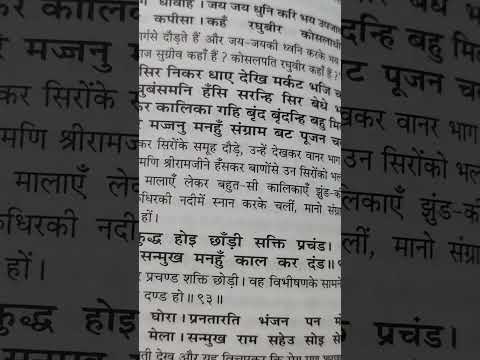 धावहिं । जय जय धुनि करि भय
कपीसा । कहँ रघुबीर
दौड़ते हैं और जय-जयकी ध्वनि करके भय
सुग्रीव कहाँ हैं ? कोसलपति रघुवीर कहाँ हैं ?
सिर निकर धाए देखि मर्कट भजि
हँसि सरन्हि सिर बेधे
कालिका गहि बृंद बृंदन्हि बहु
मज्जनु मनहुँ संग्राम बट पूजन
कर सिरोंके समूह दौड़े, उन्हें देखकर वानर भाग
मणि श्रीरामजीने हँसकर बाणोंसे उन सिरोंको
मालाएँ लेकर बहुत-सी कालिकाएँ
नदीमें स्नान करके चलीं, मानो
हों।
क्रुद्ध होइ छाँड़ी सक्ति प्रचंड।
सन्मुख मनहुँ काल कर दंड॥
प्रचण्ड शक्ति छोड़ी। वह विभीषणके सामने
दण्ड हो॥ ९३॥
घोरा। प्रनतारति भंजन पन
मेला। सन्मुख राम सहेउ सोइ
देख और यह विचारकर कि मेरा